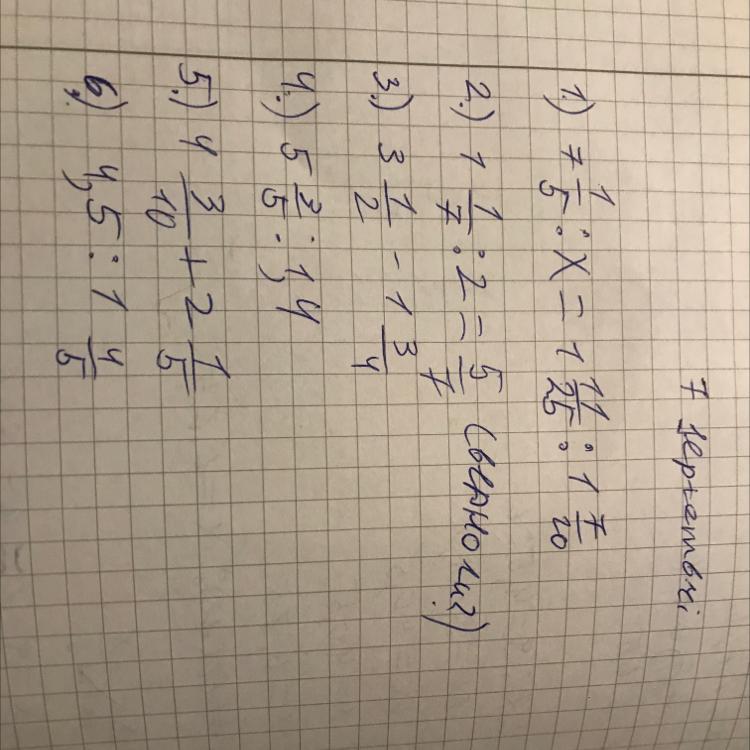 7 september.
1.) 7 1/5 : x = 1 11/25 : 1 7/20
2.) 1 1/7 : 2 = 5/7 (верно ли?)
3.) 3 1/2 - 1 3/4
4.) 5 3/5 : 1,4
5.) 4 3/10 + 2 1/5
6.) 4,5 : 1 4/5